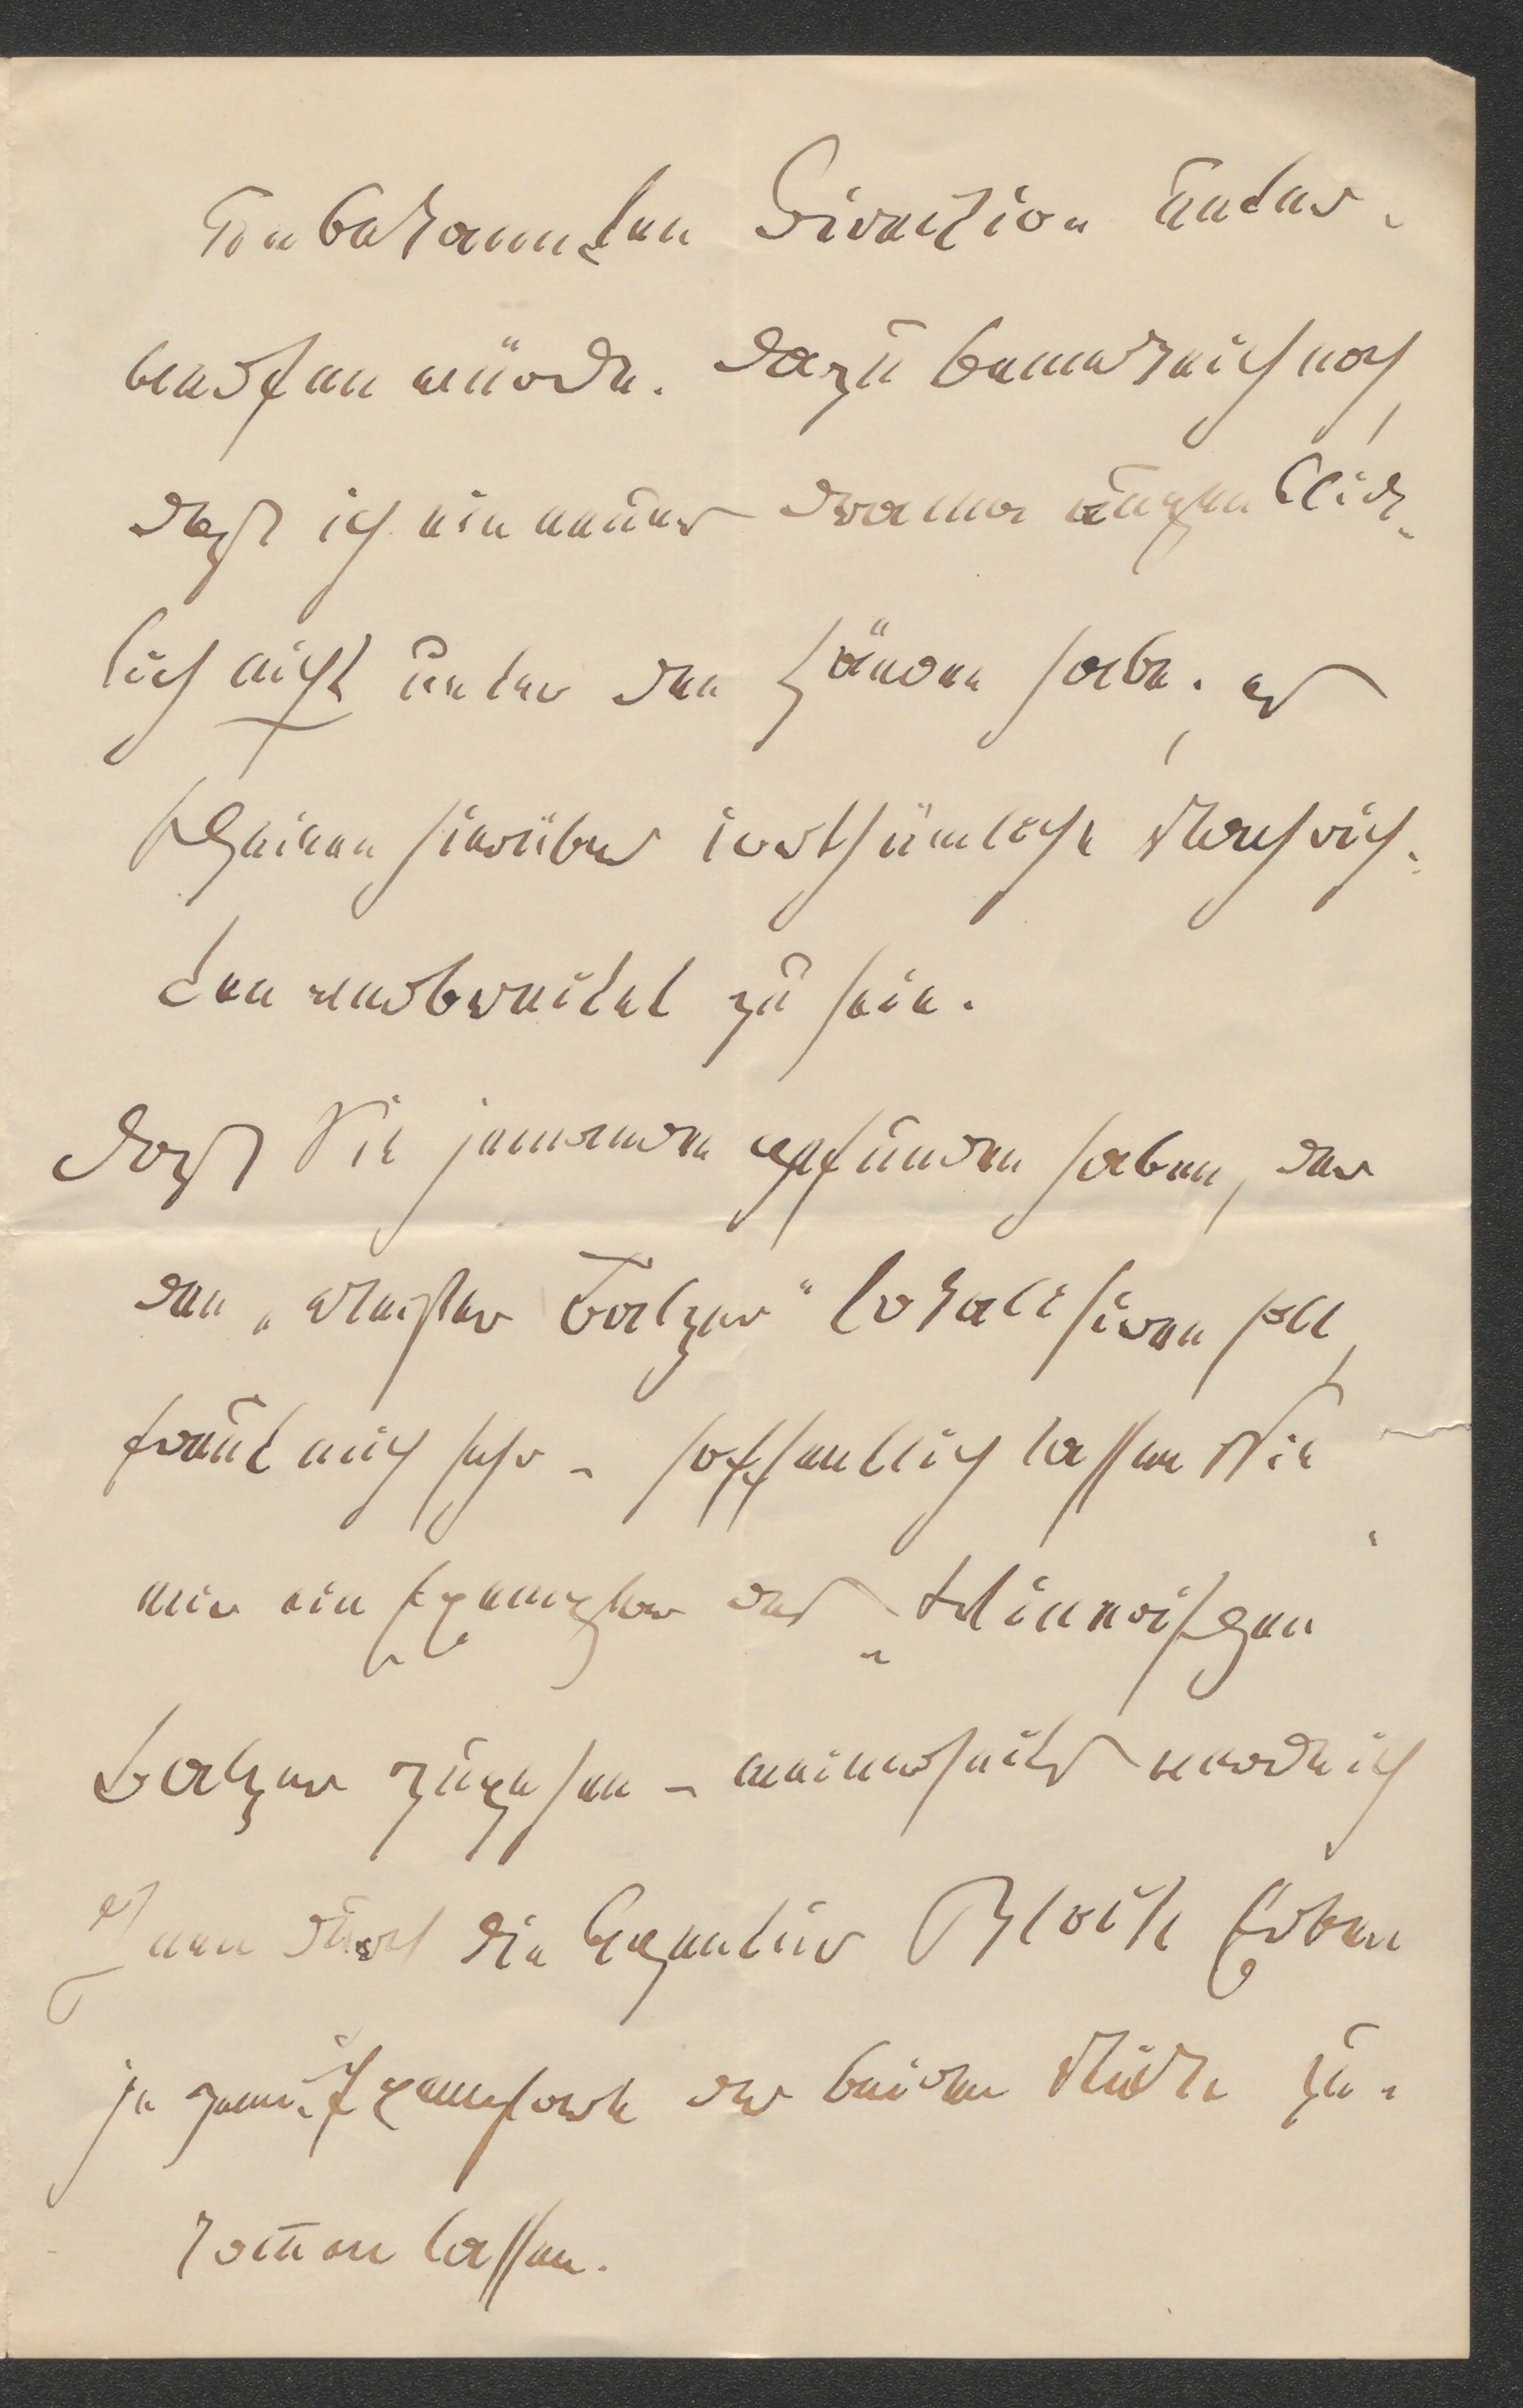 unbekannten Direction unter-
werfen würde. Dazu bemerke ich noch,
daß ich ein neues Drama augenblick-
lich nicht unter den Händen habe. es
scheinen hierüber irrthümliche Nachrich-
ten verbreitet zu sein.
Daß Sie jemanden gefunden haben, der
den „Meister Balzer“ lokalisiren soll,
freut mich sehr – hoffentlich lassen Sie
mir ein Exemplar des „Wienerischen“
Balzer zugehen – meinerseits werde ich
Ihnen durch die Agentur Bloch Erben
je zwei Exemplare der beiden Stücke zu-
kom̄en lassen.